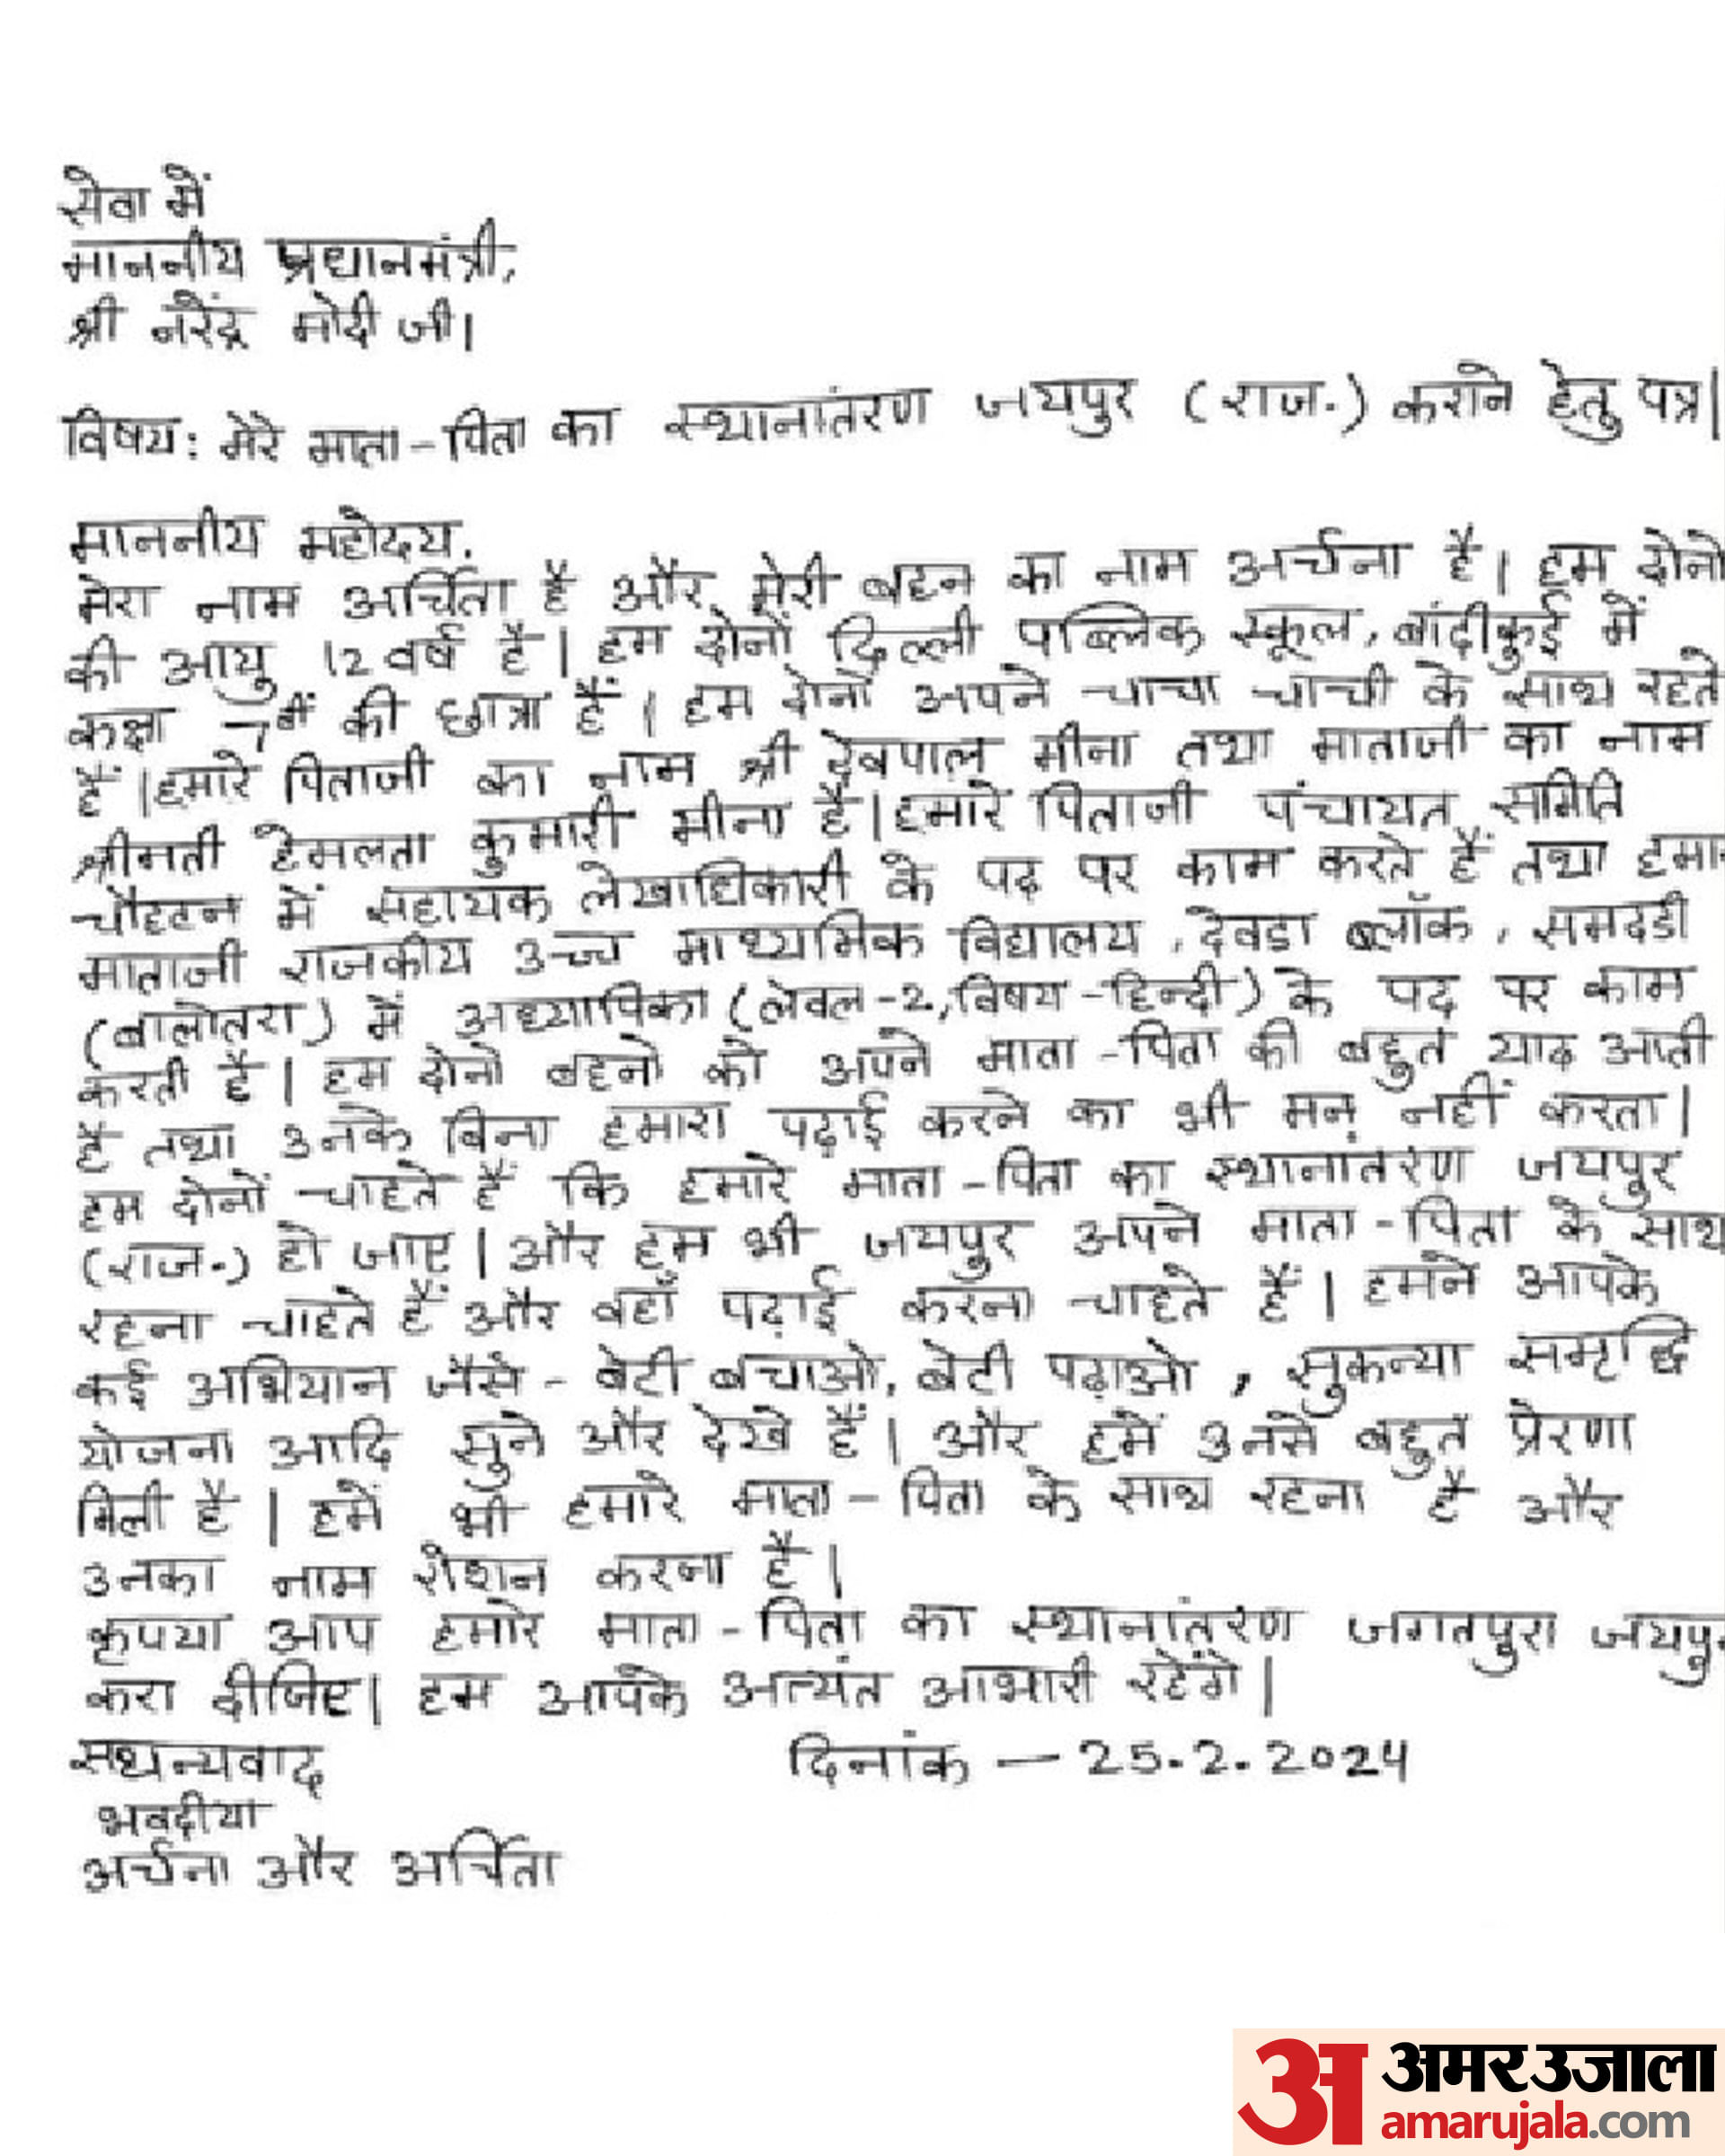 सेवा में
माननीय प्रधानमंत्री,
श्री नरेंद्र मोदी जी।
विषय: मेरे माता-पिता का स्थानांतरण जयपुर (राज.) कराने हेतु पत्र|
माननीय महोदय.
मेरा नाम अर्चिता है और मेरी बहन का नाम अर्चना है। हम दोनो
की आयु 12 वर्ष है। हम दोनों दिल्ली पब्लिक स्कूल, बांदीकुई में
कक्षा 7वीं की छात्रा हैं। हम दोनों अपने चाचा चाची के साथ रहते
हैं।हमारे पिताजी का नाम श्री देवपाल मीना तथा माताजी का नाम
श्रीमती हेमलता कुमारी मीना है।हमारे पिताजी पंचायत समिति
चौहटन में सहायक लेखाधिकारी के पद पर काम करते हैं तथा
माताजी राजकीय उच्च माध्यमिक विद्यालय, देवडा ब्लॉक, समदडी
(बालोतरा) में अध्यापिका (लेवल-2,विषय-हिन्दी) के पद पर काम
करती है। हम दोनो बहनो को अपने माता-पिता की बहुत याद आती
है तथा उनके बिना हमारा पढ़ाई करने का भी मन नहीं करता।
हम दोनों चाहते हैं कि हमारे माता-पिता का स्थानांतरण जयपुर
(राज.) हो जाए। और हम भी जयपुर अपने माता-पिता के साथ
रहना चाहते हैं और वहाँ पढ़ाई करना चाहते हैं। हमने आपके
कई अभियान जैसे - बेटी बचाओ, बेटी पढ़ाओ, सुकन्या समृद्धि
योजना आदि सुने और देखे हैं। और हमें उनसे बहुत प्रेरणा
मिली है। हमें भी हमारे माता-पिता के साथ रहना है और
उनका नाम रोशन करना है।
कृपया आप हमारे माता-पिता का स्थानांतरण जगतपुरा जयपुर
करा दीजिए। हम आपके अत्यंत आभारी रहेंगे।
सधन्यवाद् दिनांक - 25.2.2024
भवदीया
अर्चना और अर्चिता
अ अमर उजाला
amarujala.com